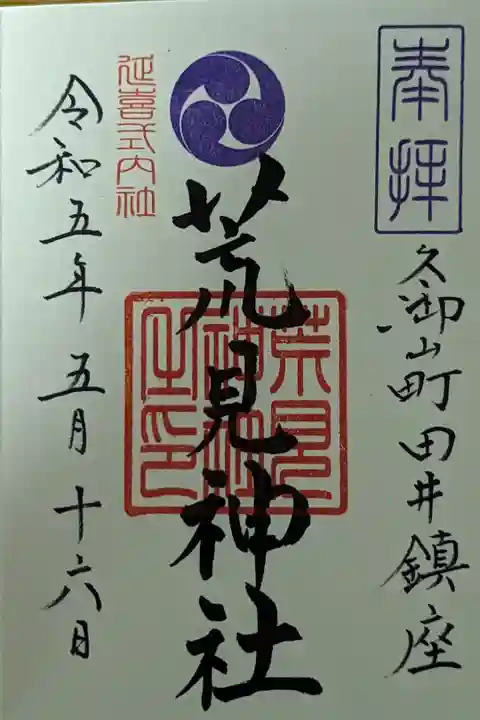 奉拝
久御山町田井鎮座
荒見神社
荒見神社之印
延喜式内社
令和五年五月十六日